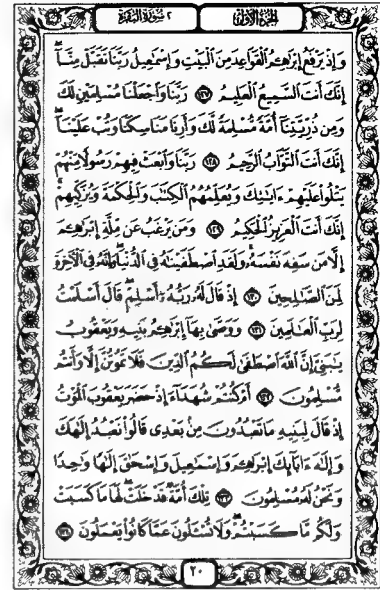 الجزء الأول ٢ سورة البقرة
وَإِذْ يَرْفَعُ إِبْرَاهِـۧمُ ٱلْقَوَاعِدَ مِنَ ٱلْبَيْتِ وَإِسْمَـٰعِيلُ رَبَّنَا تَقَبَّلْ مِنَّآ ۖ
إِنَّكَ أَنتَ ٱلسَّمِيعُ ٱلْعَلِيمُ ١٢٧ رَبَّنَا وَٱجْعَلْنَا مُسْلِمَيْنِ لَكَ
وَمِن ذُرِّيَّتِنَآ أُمَّةً مُّسْلِمَةً لَّكَ وَأَرِنَا مَنَاسِكَنَا وَتُبْ عَلَيْنَآ ۖ
إِنَّكَ أَنتَ ٱلتَّوَّابُ ٱلرَّحِيمُ ١٢٨ رَبَّنَا وَٱبْعَثْ فِيهِمْ رَسُولًا مِّنْهُمْ
يَتْلُوا۟ عَلَيْهِمْ ءَايَـٰتِكَ وَيُعَلِّمُهُمُ ٱلْكِتَـٰبَ وَٱلْحِكْمَةَ وَيُزَكِّيهِمْ ۚ
إِنَّكَ أَنتَ ٱلْعَزِيزُ ٱلْحَكِيمُ ١٢٩ وَمَن يَرْغَبُ عَن مِّلَّةِ إِبْرَاهِـۧمَ
إِلَّا مَن سَفِهَ نَفْسَهُۥ ۚ وَلَقَدِ ٱصْطَفَيْنَـٰهُ فِى ٱلدُّنْيَا ۖ وَإِنَّهُۥ فِى ٱلْـَٔاخِرَةِ
لَمِنَ ٱلصَّـٰلِحِينَ ١٣٠ إِذْ قَالَ لَهُۥ رَبُّهُۥٓ أَسْلِمْ ۖ قَالَ أَسْلَمْتُ
لِرَبِّ ٱلْعَـٰلَمِينَ ١٣١ وَوَصَّىٰ بِهَآ إِبْرَاهِـۧمُ بَنِيهِ وَيَعْقُوبُ
يَـٰبَنِىَّ إِنَّ ٱللَّهَ ٱصْطَفَىٰ لَكُمُ ٱلدِّينَ فَلَا تَمُوتُنَّ إِلَّا وَأَنتُم
مُّسْلِمُونَ ١٣٢ أَمْ كُنتُمْ شُهَدَآءَ إِذْ حَضَرَ يَعْقُوبَ ٱلْمَوْتُ
إِذْ قَالَ لِبَنِيهِ مَا تَعْبُدُونَ مِنۢ بَعْدِى قَالُوا۟ نَعْبُدُ إِلَـٰهَكَ
وَإِلَـٰهَ ءَابَآئِكَ إِبْرَاهِـۧمَ وَإِسْمَـٰعِيلَ وَإِسْحَـٰقَ إِلَـٰهًا وَٰحِدًا
وَنَحْنُ لَهُۥ مُسْلِمُونَ ١٣٣ تِلْكَ أُمَّةٌ قَدْ خَلَتْ ۖ لَهَا مَا كَسَبَتْ
وَلَكُم مَّا كَسَبْتُمْ ۖ وَلَا تُسْـَٔلُونَ عَمَّا كَانُوا۟ يَعْمَلُونَ ١٣٤
٢٠